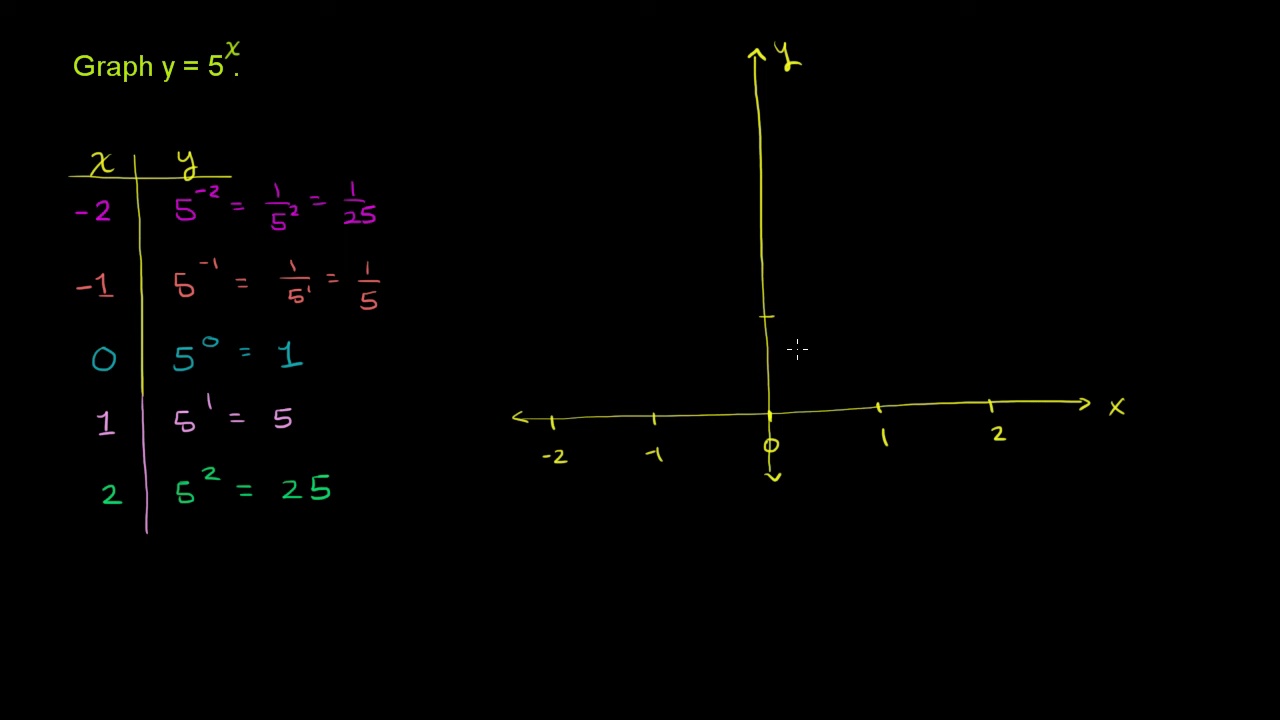 Graph y = 5^x.
x y
-2 5^-2 = 1/5^2 = 1/25
-1 5^-1 = 1/5^1 = 1/5
0 5^0 = 1
1 5^1 = 5
2 5^2 = 25
y
x
-2 -1 0 1 2